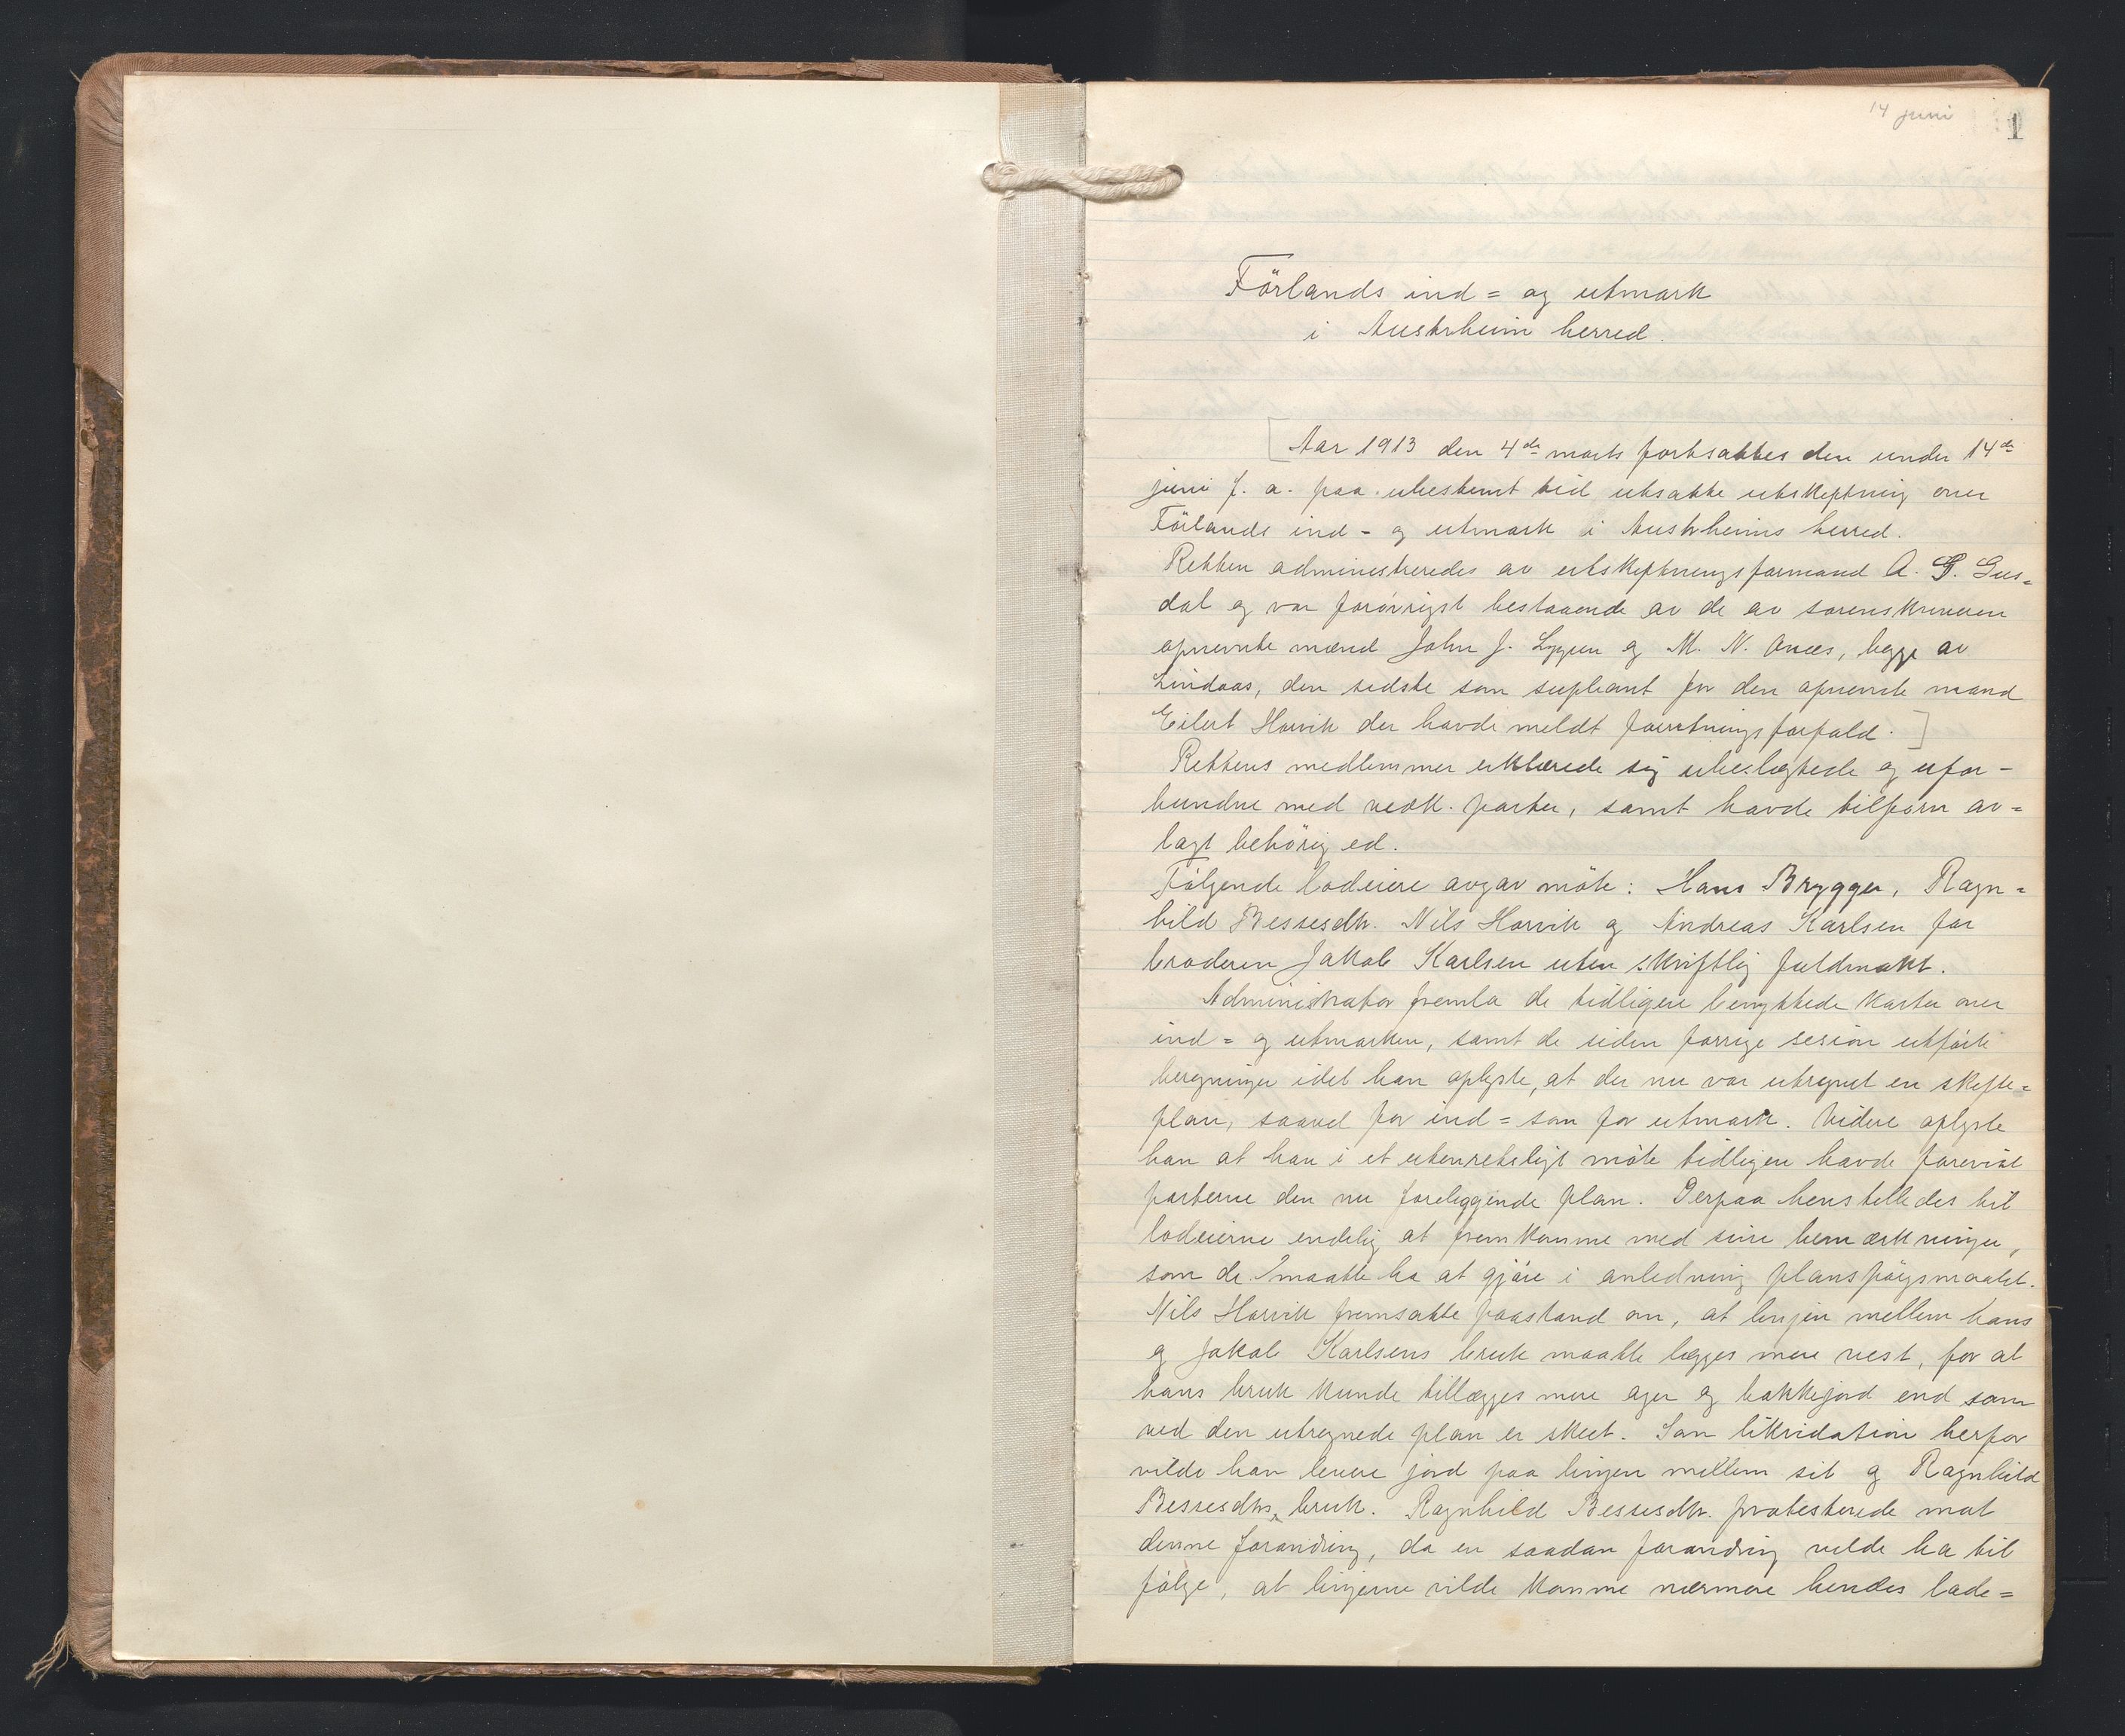 14 juni
1
Förlands ind = og utmark
i Austrheim herred.
Aar 1913 den 4de marts fortsattes den under 14de
juni f. a. paa ubestemt tid utsatte utskiftning over
Förlands ind - og utmark i Austrheims herred.
Retten administreredes av utskiftningsformand A. G. Gus=
dal og var forövrigt bestaaende av de av sorenskriveren
opnevnte mænd John J. Lygren og M. N. Anæs, begge av
Lindaas, den sidste som supleant for den opnevnte mand
Eilert Horvik der havde meldt forretningsforfald.
Rettens medlemmer erklærede sig ubeslegtede og ufor-
bundne med vedk. parter, samt havde tilforn av=
lagt behörig ed.
Fölgende lodeiere avgav möte: Hans Brygger, Ragn=
hild Bessesdtr. Nils Horvik og Andreas Karlsen for
broderen Jakob Karlsen uten skriftlig fuldmakt.
Administrator fremla de tidligere benyttede karter over
ind = og utmarken, samt de siden forrige sesion utförte
beregninger idet han oplyste, at der nu var utregnet en skifte=
plan, saavel for ind = som for utmark. Videre oplyste
han at han i et utenretsligt möte tidligere havde forevist
parterne den nu foreliggende plan. Derpaa henstilledes til
lodeierne endelig at fremkomme med sine bemærkninger,
som de maatte ha at gjöre i anledning planspörgsmaalet.
Nils Horvik fremsatte paastand om, at linjen mellem hans
og Jakob Karlsens bruk maatte lægges mere vest, for at
hans bruk kunde tillægges mere ager og bakkejord end som
ved den utregnede plan er skeet. Som likvidation herfor
vilde han levere jord paa linjen mellem sit og Ragnhild
Bessesdtrs bruk. Ragnhild Bessesdtr. protesterede mot
denne forandring, da en saadan forandring vilde ha til
fölge, at linjerne vilde komme nærmere hendes lade=